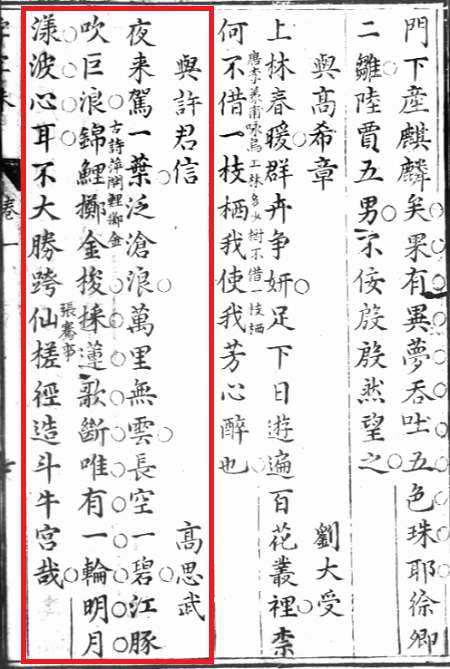 門下產麒麟矣果有異夢吞吐五色珠耶徐卿
二雛陸賈五男不佞殷殷然望之
與高希章　劉大受
上林春暖群卉争妍足下日遊遍百花叢裡柰
唐李義甫咏烏上林多少樹不借一枝栖
何不借一枝栖我使我芳心醉也
與許君信　高思武
夜来駕一葉泛滄浪萬里無雲長空一碧江豚
古詩萍開鯉擲金
吹巨浪錦鯉擲金梭採蓮歌斷唯有一輪明月
張騫事
漾波心耳不大勝跨仙槎徑造斗牛宮哉
卷一